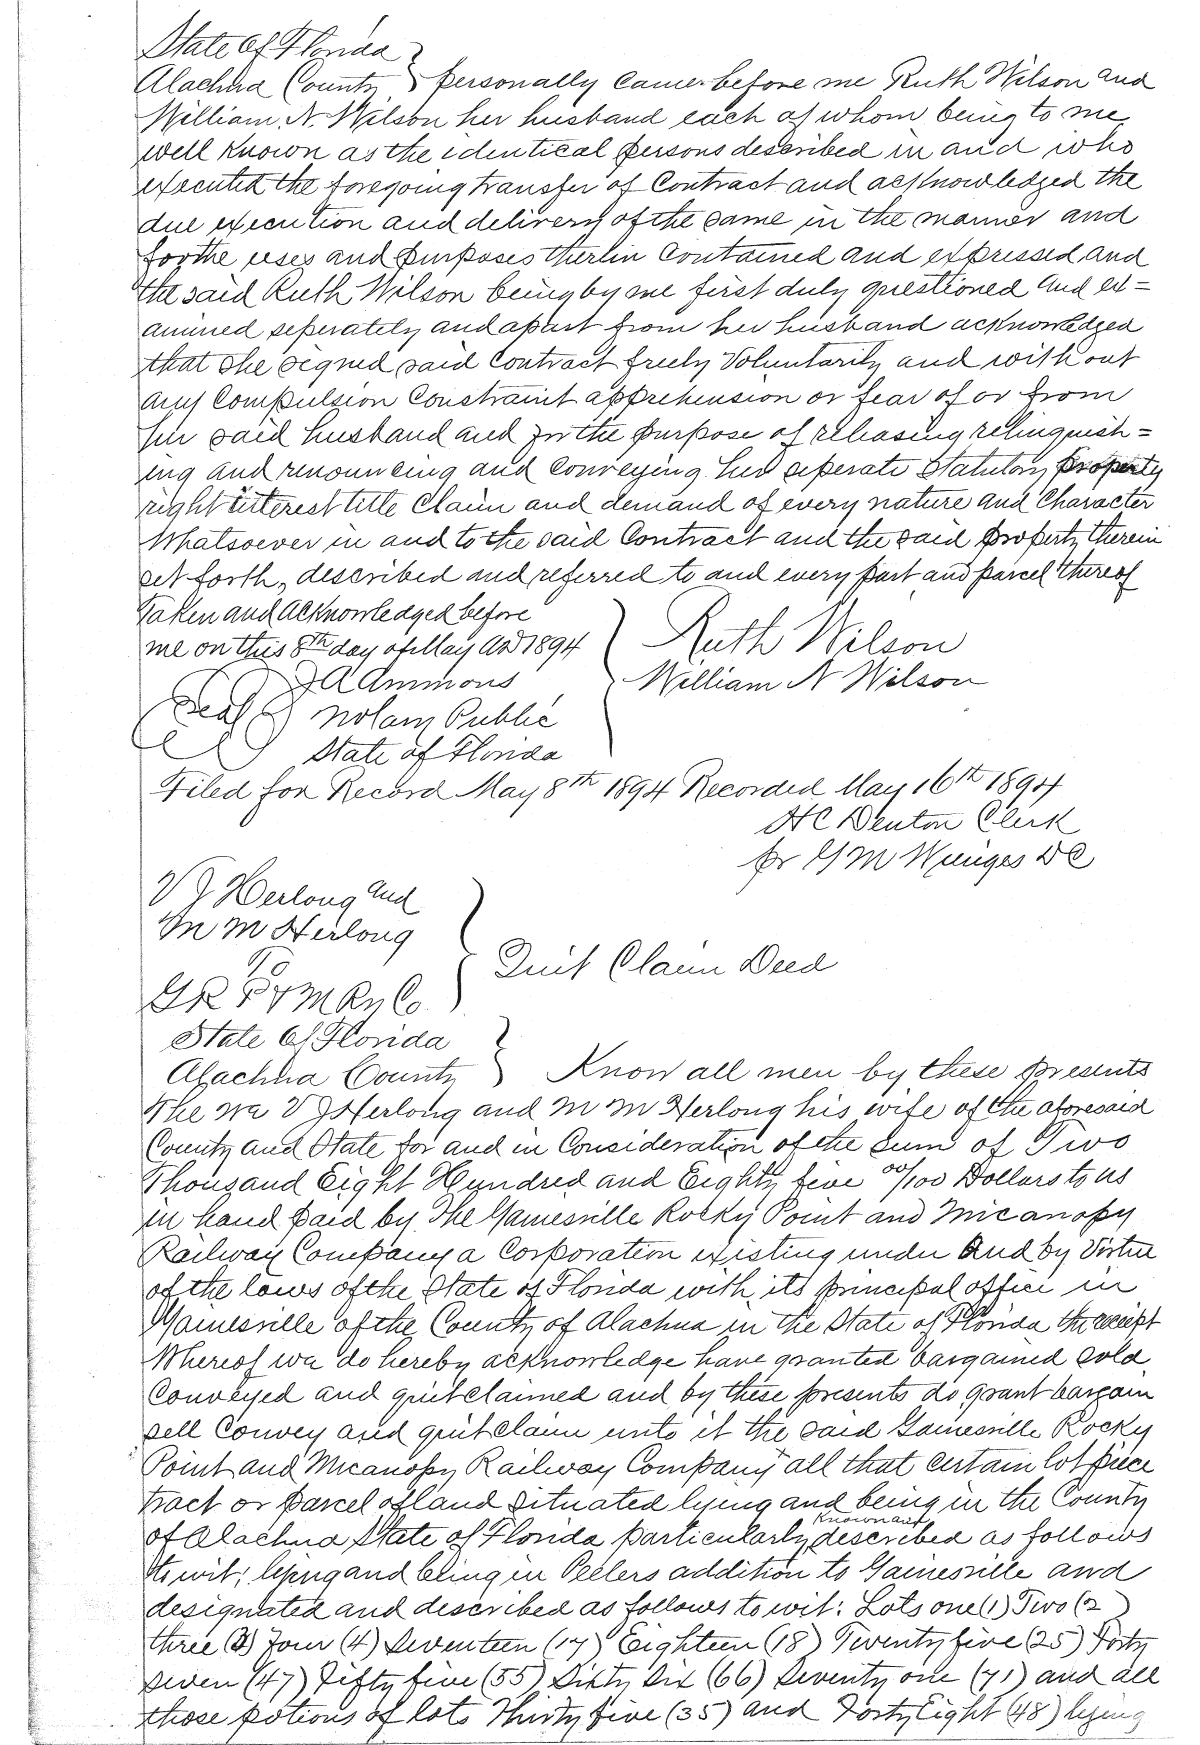 State of Florida
Alachua County } personally came before me Ruth Wilson and
William. N. Wilson her husband each of whom being to me
well known as the identical persons described in and who
executed the foregoing transfer of Contract and acknowledged the
due execution and delivery of the same in the manner and
for the uses and purposes therein contained and expressed and
the said Ruth Wilson being by me first duly questioned and ex=
amined seperately and apart from her husband acknowledged
that she signed said contract freely Voluntarily and without
any Compulsion Constraint apprehension or fear of or from
her said husband and for the purpose of releasing relinquish=
ing and renouncing and conveying her seperate Statutory property
right interest title Claim and demand of every nature and Character
Whatsoever in and to the said Contract and the said property therein
set forth, described and referred to and every part and parcel thereof
Taken and acknowledged before
me on this 8th day of May AD 1894
Ruth Wilson
William N Wilson
J A Ammons
Seal
Notary Public
State of Florida
Filed for Record May 8th 1894 Recorded May 16th 1894
H C Denton Clerk
pr G M D C
V J Herlong and
M M Herlong
To
G R P & M Ry Co
Quit Claim Deed
State of Florida
Alachua County } Know all men by these presents
The we V J Herlong and M M Herlong his wife of the aforesaid
County and State for and in Consideration of the sum of Two
Thousand Eight Hundred and Eighty five 00/100 Dollars to us
in hand paid by The Gainesville Rocky Point and Micanopy
Railway Company a Corporation existing under and by Virtue
of the laws of the State of Florida with its principal office in
Gainesville of the County of Alachua in the State of Florida the receipt
Whereof we do hereby acknowledge have granted bargained sold
Conveyed and quitclaimed and by these presents do grant bargain
sell Convey and quitclaim unto it the said Gainesville Rocky
Point and Micanopy Railway Company all that certain lot piece
tract or parcel of land situated lying and being in the County
of Alachua State of Florida particularly known and described as follows
to wit; lying and being in Peelers addition to Gainesville and
designated and described as follows to wit: Lots one (1) Two (2)
three (3) Four (4) Seventeen (17) Eighteen (18) Twenty five (25) Forty
seven (47) Fifty five (55) Sixty Six (66) Seventy one (71) and all
those potions of lots Thirty five (35) and Forty Eight (48) lying